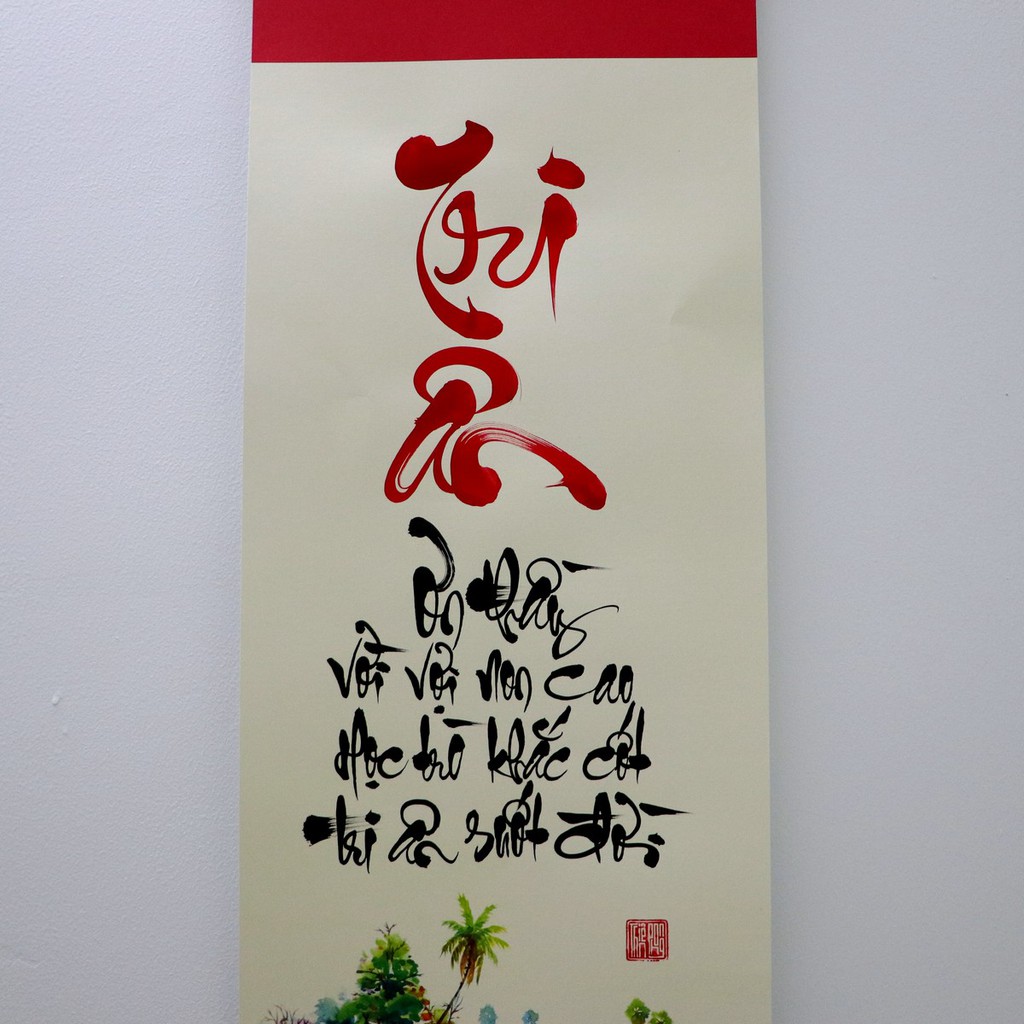 Tri
Ân
Ơn thầy
vời vợi non cao
Học trò khắc cốt
tri ân suốt đời